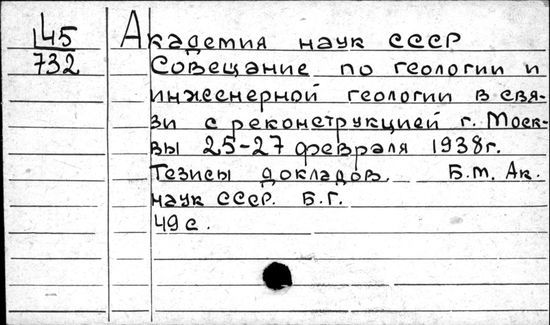 145
732
Академия наук СССР
Совещание по геологии и
инженерной геологии в свя-
зи с реконструкцией г. Моск-
вы 25-27 февраля 1938г.
Тезисы докладов. Б.М. Ак.
наук СССР. Б.Г.
49 с.